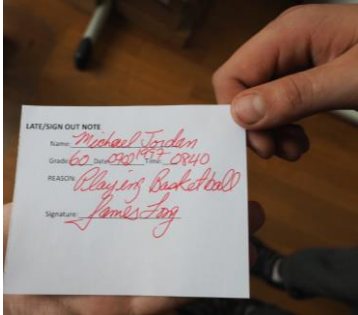 LATE/SIGN OUT NOTE
Name: Michael Jordan
Grade: 60 Date: 0202 1997 Time: 0840
REASON: Playing Basketball
Signature: James Fong